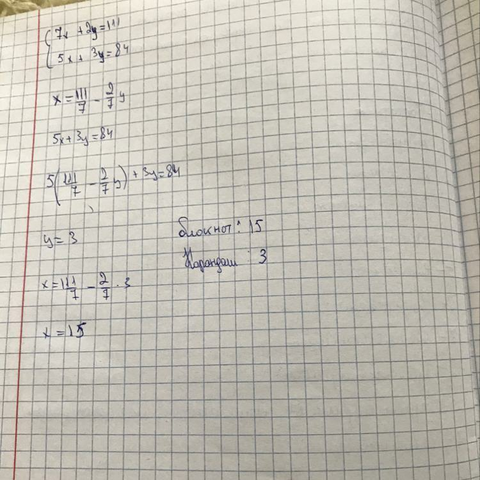 7x + 2y = 111
5x + 3y = 84
x = 111/7 - 2/7 y
5x + 3y = 84
5(111/7 - 2/7 y) + 3y = 84
y = 3
x = 111/7 - 2/7 · 3
x = 15
блокнот: 15
Карандаш 3